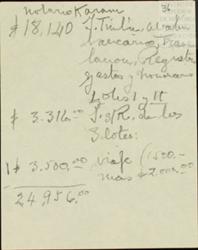 notario Karam
36
$ 18,140 J. Timbre, 
bancario, Tras
lacion, Registro
gastos y honorarios
Lotes I y II
$ 3.316.00 I. s/R. de los
3 lotes:
1$ 3.500,00 viaje (1500.-
mas $ 2.000.00
24956.00